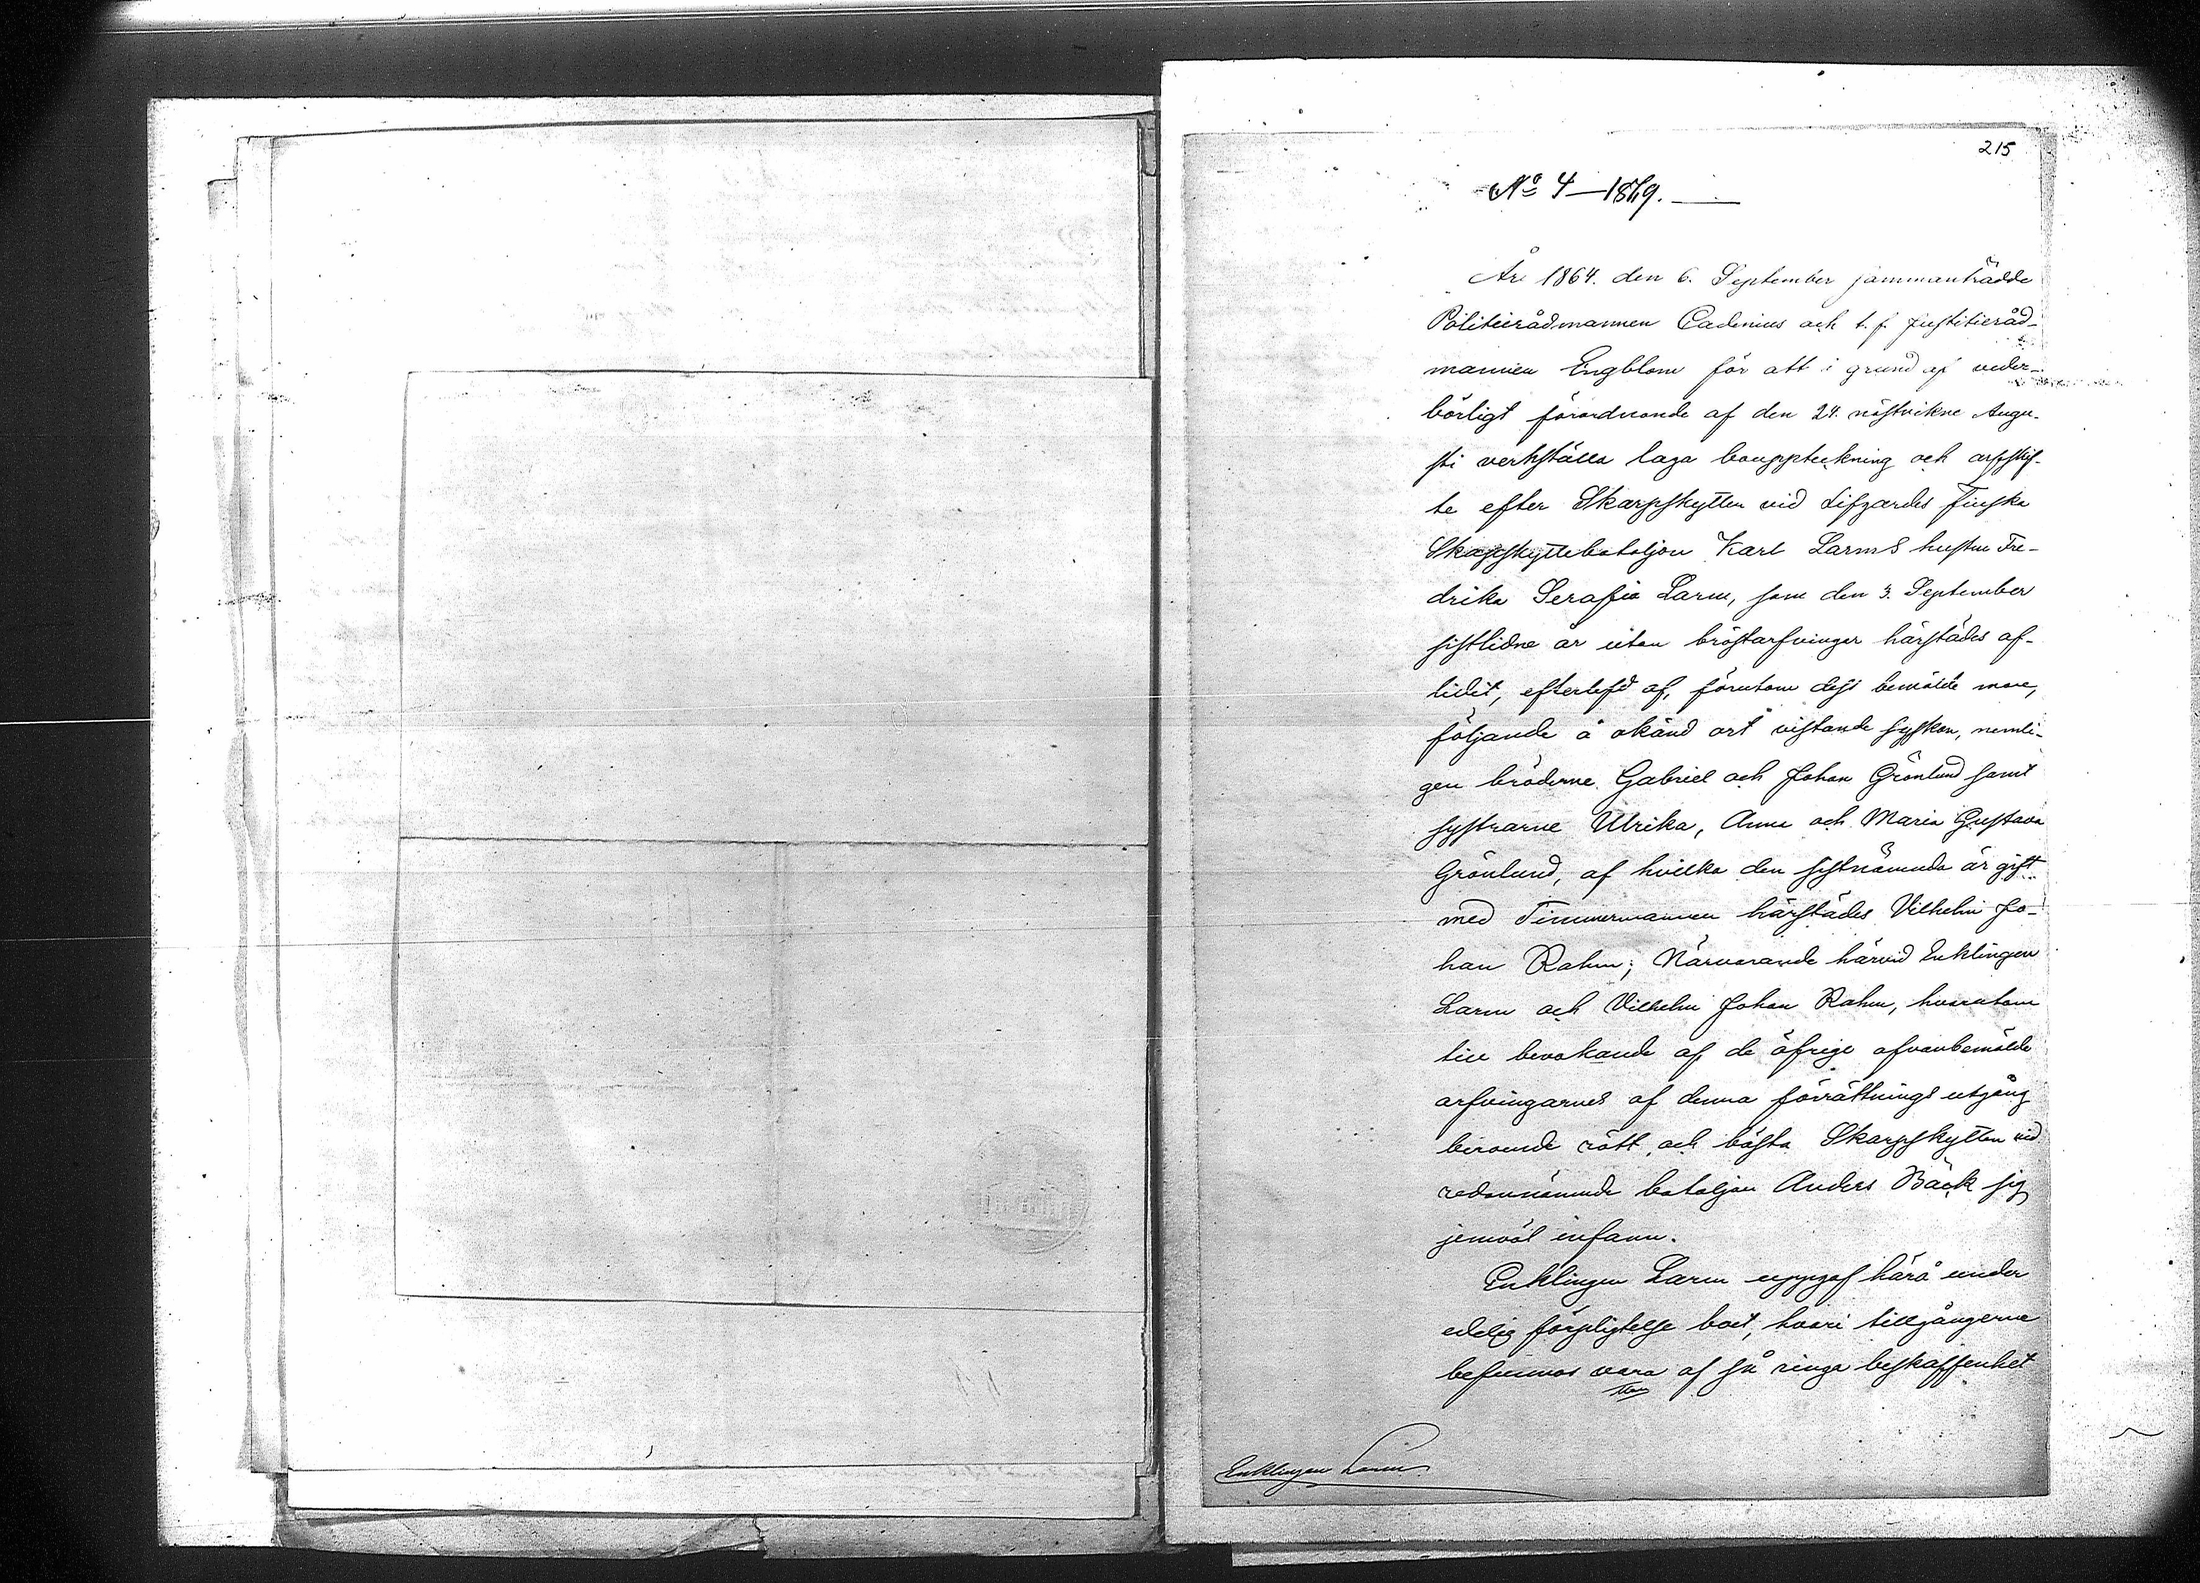 215
No 4–1879.
År 1864. den 6. September sammanträdde
Politierådmannen Cadenius och t. f. Justitieråd-
mannen Engblom för att i grund af veder-
börligt förordnande af den 24. nästvikne Augu-
sti verkställa laga bouppteckning och arfskif-
te efter Skarpskytten vid Lifgardes Finska
Skarpskyttebataljon Karl Larms hustru Fre-
drika Serafia Larm, som den 3. September
sistlidne år utan bröstarfvingar härstädes af-
lidit, efterlefd af, förutom dess bemälde man,
följande å okänd ort vistande syskon, nemli-
gen bröderne Gabriel och Johan Grönlund samt
systrarne Ulrika, Anna och Maria Gustava
Grönlund, af hvilka den sistnämnda är gift
med Timmermannen härstädes Vilhelm Jo-
han Rahm; Närvarande härvid Enklingen
Larm och Vilhelm Johan Rahm, hvarutom
till bevakande af de öfrige ofvanbemälde
arfvingarnes af denna förrättnings utgång
beroende rätt och bästa Skarpskytten vid
redannämnde bataljon Anders Bäck sig
jemväl infann.
Enklingen Larm uppgaf härå under
edelig förpligtelse boet, hvari tillgångerne
befunnos vara af så ringa beskaffenhet
Enklingen Larm.